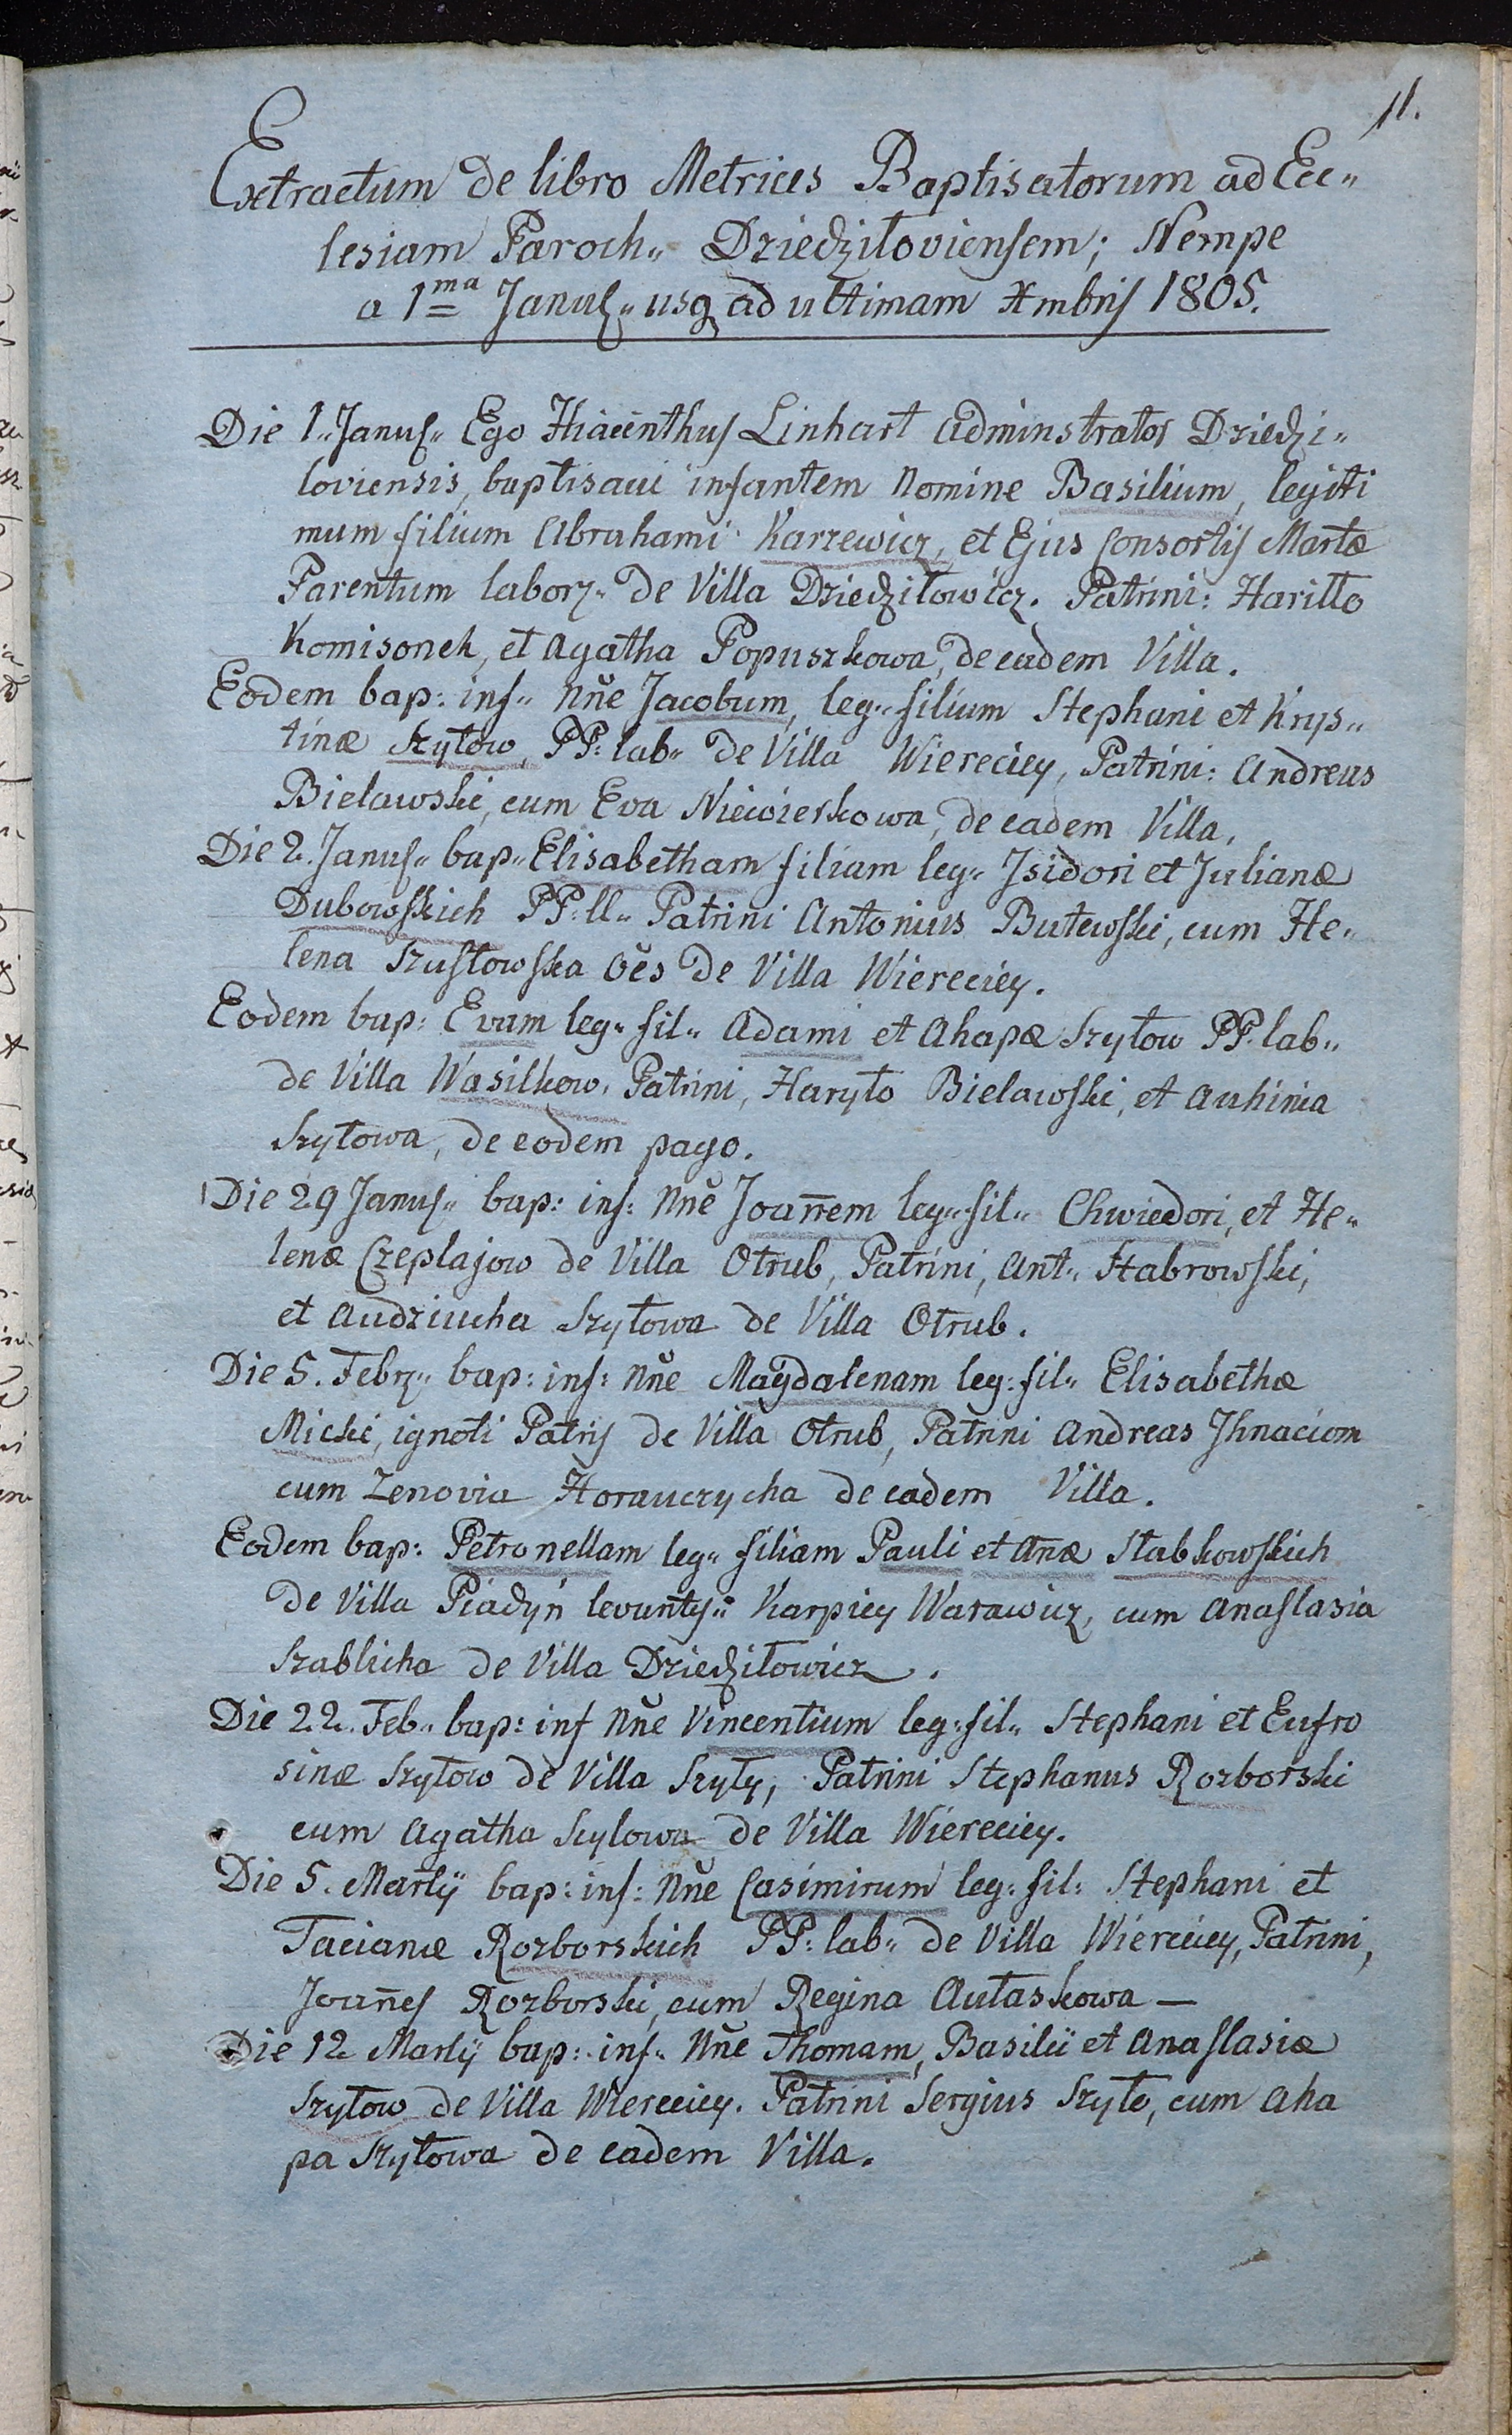 11.
Extractum de libro Metrices Baptisatorum ad Ecc„
lesiam Paroch„ Dziedziłoviensem; Nempe
a 1ma Janur„ usq ad ultimam Xmbris 1805.
Die 1„ Janur„ Ego Hiacinthus Linhart Adminstrator Dziedzi„
loviensis, baptisavi infantem Nomine Basilium, legiti
mum filium Abrahami Karzewicz, et Ejus Consortis Martæ
Parentum laborz„ de Villa Dziedziłowicz. Patrini: Hariłło
Komisonek, et Agatha Popuszkowa, de eadem Villa.
Eodem bap: inf„ Nñe Jacobum, leg„ filium Stephani et Krys„
tinæ Szyłow, PP: lab„ de Villa Wiereciey, Patrini: Andreas
Bielawski, cum Eva Niewierkowa, de eadem Villa.
Die 2. Janur„ bap„ Elisabetham filiam leg„ Isidori et Julianæ
Dubowskich PP: ll„ Patrini Antonius Butewski, cum He„
lena Szustowska oẽs de Villa Wiereciey.
Eodem bap: Evam leg„ fil„ Adami et Ahapæ Szyłow PP. lab„
de Villa Wasilkow, Patrini, Haryło Bielawski, et Auhinia
Szyłowa, de eodem pago.
Die 29 Janur„ bap: inf: Nñe Joañem leg„ fil„ Chwiedori, et He„
lenæ Czeplajow de Villa Otrub, Patrini, Ant„ Habrowski,
et Audziucha Szyłowa de Villa Otrub.
Die 5. Febr„ bap: inf: Nñe Magdalenam leg: fil„ Elisabethæ
Micki, ignoti Patris de Villa Otrub, Patrini Andreas Ihnaciom
cum Zenovia Horauczycha de eadem Villa.
Eodem bap: Petronellam leg„ filiam Pauli et Añæ Słabkowskich
de Villa Piadyń levanty„ Karpiey Warawicz, cum Anastasia
Szablicha de Villa Dziedziłowicz.
Die 22. Feb„ bap: inf Nñe Vincentium leg: fil„ Stephani et Eufro
sinæ Szyłow de Villa Szyły, Patrini Stephanus Rozborski
cum Agatha Szylowa de Villa Wiereciey.
Die 5. Martij bap: inf: Nñe Casimirum leg: fil: Stephani et
Tacianæ Rozborskich PP: lab„ de Villa Wiereciey, Patrini,
Joañes Rozborski, cum Regina Autaskowa —
Die 12 Martij bap: inf„ Nñe Thomam, Basilii et Anastasiæ
Szyłow de Villa Wiereciey. Patrini Sergius Szyło, cum Aha
pa Szyłowa de eadem Villa.